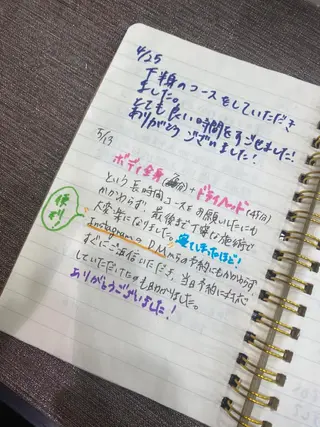 4/25
下半身のコースをしていただき
ました。
とても良い時間をすごせました!
ありがとうございました!
5/13
ボディ全身 + ドライヘッド(45分)
という長時間コースをお願いしたにも
かかわらず、最後まで丁寧な施術で
大変楽になりました。寝しまったほど!
便利
InstagramのDMからの予約にもかかわらず
すぐにご返信いただき、当日予約に対応
していただいたのも助かりました。
ありがとうございました!